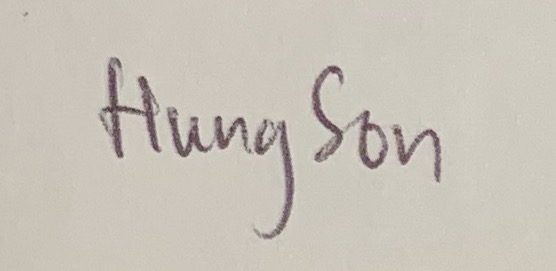 Hung Son